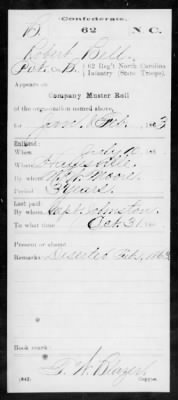 Confederate.
B 62 N.C.
Robert Bell
Pvt., Co. B, 62 Reg't North Carolina
Infantry (State Troops).
Appears on
Company Muster Roll
of the organization named above,
for Jan & Feb, 3
Enlisted:
When
Where
By whom
Period years.
Last paid:
By whom Capt. Johnston
To what time Oct. 31
Present or absent
Remarks: Deserted Feb 1863
Book mark:
(642)
Copyist.